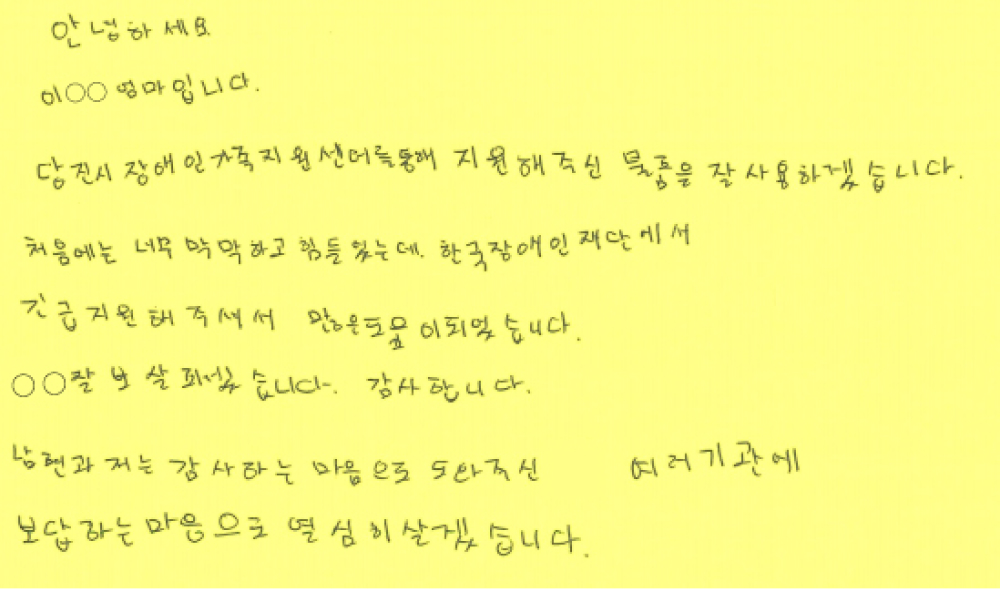 안녕하세요
이○○ 엄마입니다.
당진시 장애인가족지원센터를통해 지원해주신 물품을 잘 사용하겠습니다.
처음에는 너무 막막하고 힘들었는데. 한국장애인재단에서
긴급지원해주셔서 많은도움이되었습니다.
○○잘 보살피겠습니다. 감사합니다.
남편과 저는 감사하는 마음으로 도와주신 여러기관에
보답하는마음으로 열심히살겠습니다.